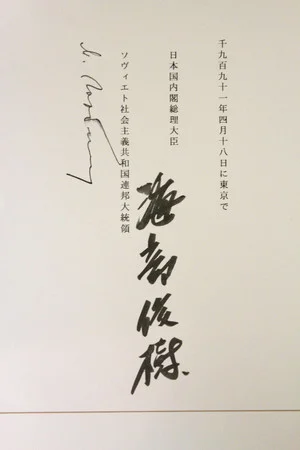 千九百九十一年四月十八日に東京で
日本国内閣総理大臣
海部俊樹
ソヴィエト社会主義共和国連邦大統領